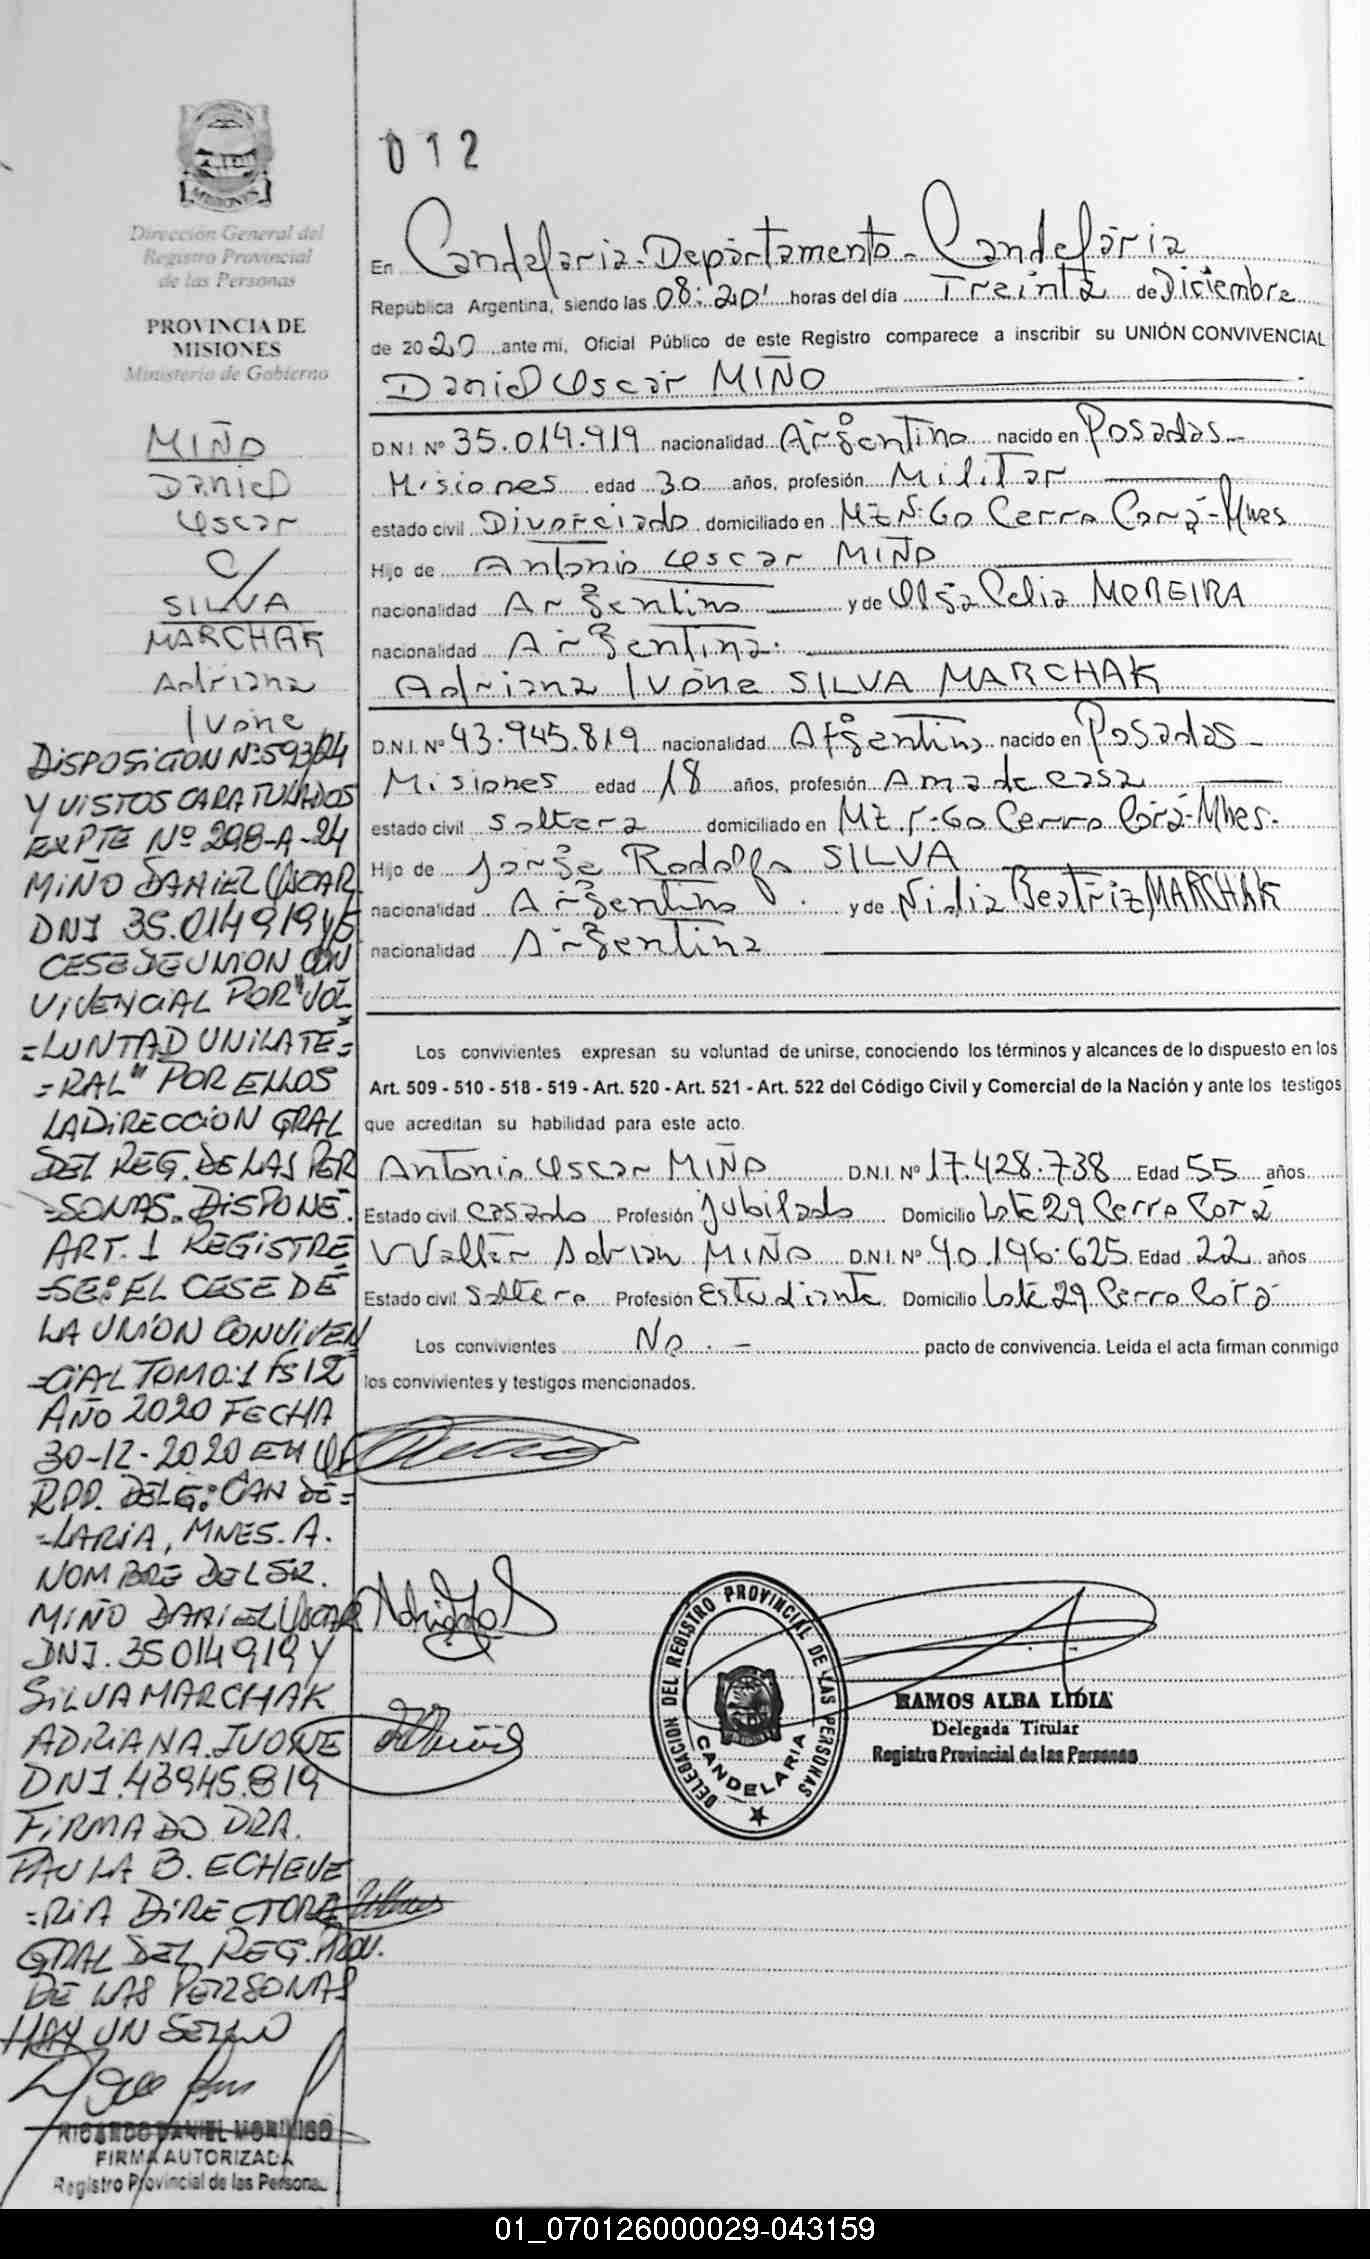 MISIONES
Dirección General del
Registro Provincial
de las Personas
PROVINCIA DE
MISIONES
Ministerio de Gobierno
MIÑO
Daniel
Oscar
C/
SILVA
MARCHAK
Adriana
Ivone
DISPOSICION Nº:593/24
Y VISTOS CARATULADOS
EXPTE Nº 298-A-24
MIÑO DANIEL OSCAR
DNI 35.014919 y/s
CESE DE UNION CON
VIVENCIAL POR "VOL
=LUNTAD UNILATE=
=RAL" POR ELLOS
LA DIRECCION GRAL
DEL REG. DE LAS PER
=SONAS. DISPONE.
ART. 1 REGISTRE
=SE: EL CESE DE
LA UNION CONVIVEN
=CIAL TOMO:1 FS 12
AÑO 2020 FECHA
30-12-2020 EN
RPP. DELEG: CANDE=
=LARIA, MNES. A.
NOMBRE DEL SR.
MIÑO DANIEL OSCAR
DNI. 35014919 Y
SILVA MARCHAK
ADRIANA IVONE
DNI. 43945.819
FIRMADO DRA.
PAULA B. ECHEVE
=RIA DIRECTORA
GRAL DEL REG. PROV.
DE LAS PERSONAS
HAY UN SELLO
RICARDO DANIEL
FIRMA AUTORIZADA
Registro Provincial de las Persona
012
En Candelaria-Departamento-Candelaria
República Argentina, siendo las 08:20' horas del día Treinta de Diciembre
de 2020 ante mí, Oficial Público de este Registro comparece a inscribir su UNIÓN CONVIVENCIAL
Daniel Oscar MIÑO
D.N.I. Nº 35.014.919 nacionalidad Argentino nacido en Posadas-
Misiones edad 30 años, profesión Militar
estado civil Divorciado domiciliado en MZ Nº:60 Cerro Corá-Mnes
Hijo de Antonio Oscar MIÑO
nacionalidad Argentino y de Olga Celia MOREIRA
nacionalidad Argentina.
Adriana Ivone SILVA MARCHAK
D.N.I. Nº 43.945.819 nacionalidad Argentina nacido en Posadas-
Misiones edad 18 años, profesión Ama de casa
estado civil Soltera domiciliado en MZ 60 Cerro Corá-Mnes.
Hijo de Jorge Rodolfo SILVA
nacionalidad Argentino y de Nidia Beatriz MARCHAK
nacionalidad Argentina
Los convivientes expresan su voluntad de unirse, conociendo los términos y alcances de lo dispuesto en los
Art. 509 - 510 - 518 - 519 - Art. 520 - Art. 521 - Art. 522 del Código Civil y Comercial de la Nación y ante los testigos
que acreditan su habilidad para este acto.
Antonio Oscar MIÑO D.N.I. Nº 17.428.738 Edad 55 años
Estado civil casado Profesión jubilado Domicilio Lote 29 Cerro Corá
Walter Adrian MIÑO D.N.I. Nº 40.196.625 Edad 22 años
Estado civil Soltero Profesión Estudiante Domicilio Lote 29 Cerro Corá
Los convivientes No.- pacto de convivencia. Leída el acta firman conmigo
los convivientes y testigos mencionados.
DELEGACION DEL REGISTRO PROVINCIAL DE LAS PERSONAS
CANDELARIA
RAMOS ALBA LIDIA
Delegada Titular
Registro Provincial de las Personas
01_070126000029-043159